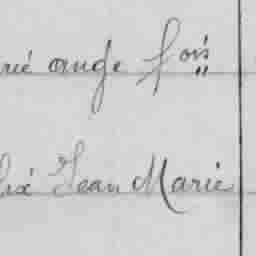 rié ange fois
lix Jean Marie